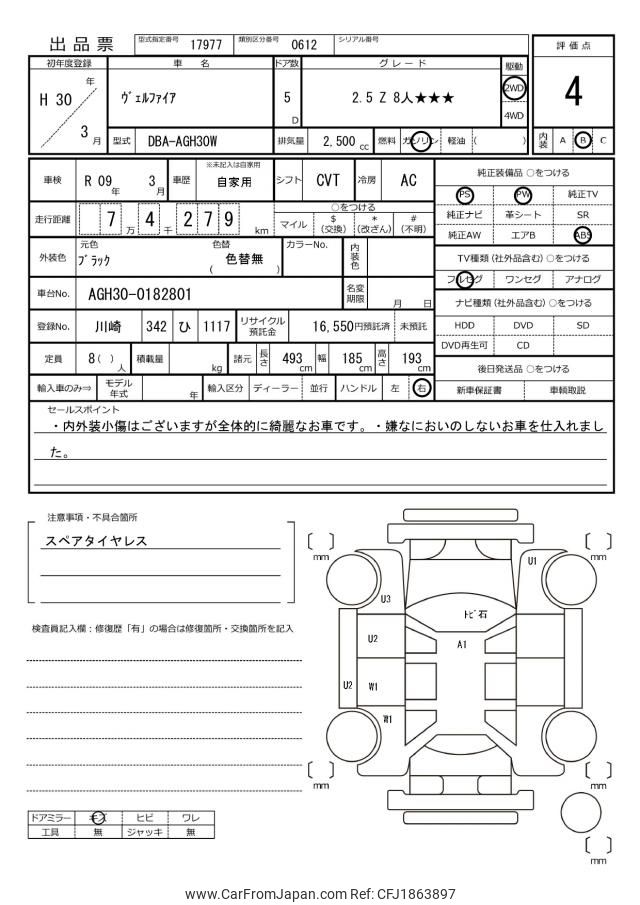 出品票 型式指定番号 17977 類別区分番号 0612 シリアル番号
評価点
4
内装 A B C
初年度登録 車名 ドア数 グレード 駆動
H 30 年 3 月 ヴェルファイア 5 D 2.5 Z 8人★★★ 2WD
4WD
型式 DBA-AGH30W 排気量 2,500 cc 燃料 ガソリン 軽油 ( )
車検 R 09 年 3 月 車歴 ※未記入は自家用 自家用 シフト CVT 冷房 AC
走行距離 7 万 4 千 2 7 9 km
○をつける
マイル $ (交換) * (改ざん) # (不明)
外装色 元色 ブラック 色替 ( 色替無 ) カラーNo. 内装色
車台No. AGH30-0182801 名変期限 月 日
登録No. 川崎 342 ひ 1117 リサイクル預託金 16,550円預託済 未預託
定員 8( ) 人 積載量 kg 諸元 長さ 493 cm 幅 185 cm 高さ 193 cm
輸入車のみ⇒ モデル年式 年 輸入区分 ディーラー 並行 ハンドル 左 右
純正装備品 ○をつける
PS PW 純正TV
純正ナビ 革シート SR
純正AW エアB ABS
TV種類(社外品含む) ○をつける
フルセグ ワンセグ アナログ
ナビ種類(社外品含む) ○をつける
HDD DVD SD
DVD再生可 CD
後日発送品 ○をつける
新車保証書 車輌取説
セールスポイント
・内外装小傷はございますが全体的に綺麗なお車です。・嫌なにおいのしないお車を仕入れまし
た。
注意事項・不具合箇所
スペアタイヤレス
検査員記入欄：修復歴「有」の場合は修復箇所・交換箇所を記入
ドアミラー キズ ヒビ ワレ
工具 無 ジャッキ 無
[ ] mm
[ ] mm
U1
U3
トビ石
U2
A1
U2
W1
W1
[ ] mm
[ ] mm
[ ] mm
www.CarFromJapan.com Ref: CFJ1863897